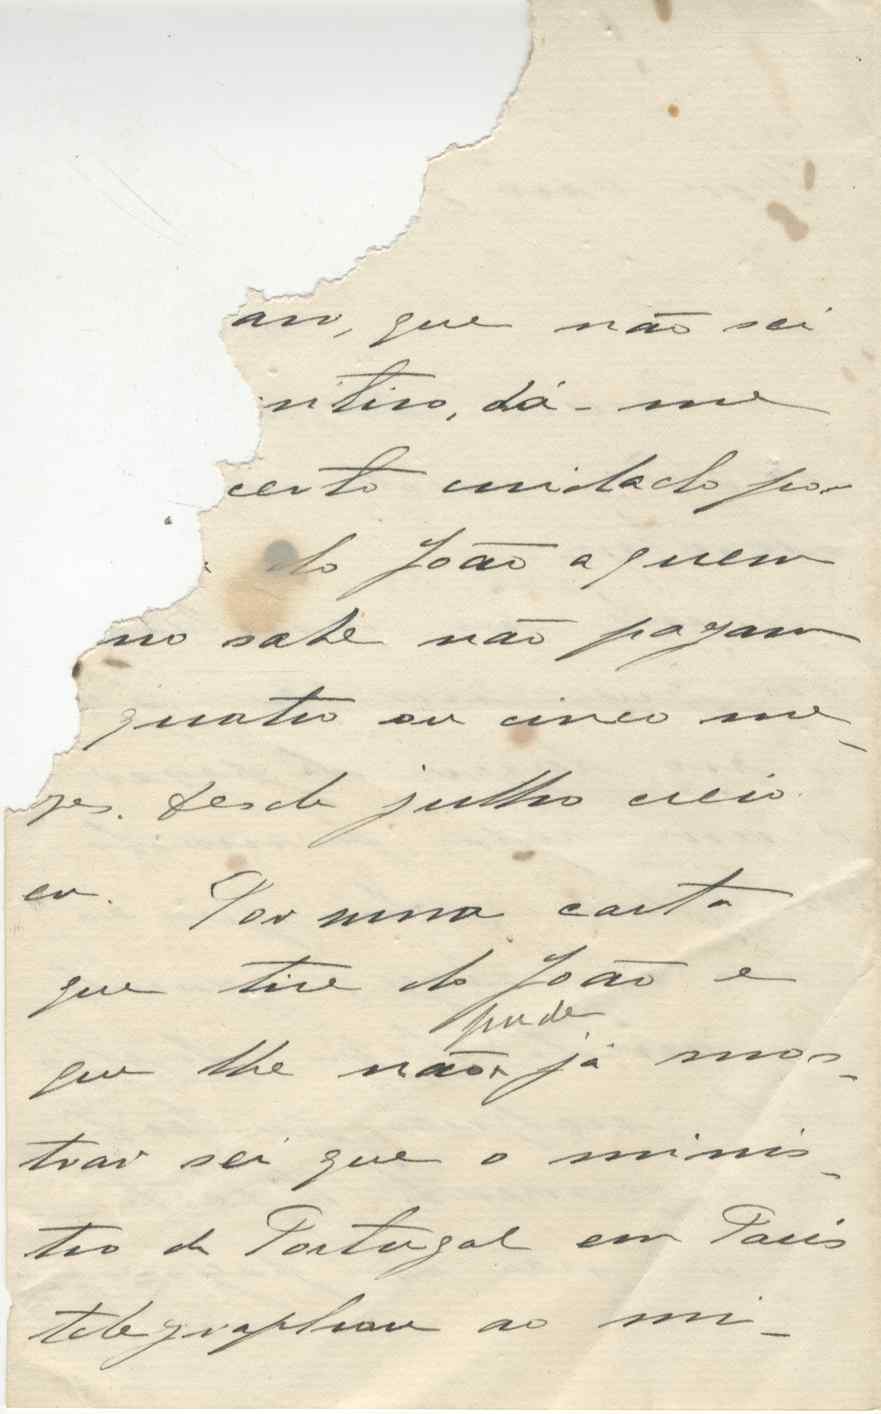 que não sei
dá-me
certo cuidado por
do João a quem
no sabe não pagam
quatro ou cinco me-
zes. Desde julho creio
eu. Por uma carta
que tive do João e
que lhe não pude já mos-
trar sei que o minis-
tro de Portugal em Paris
telegraphou ao mi-